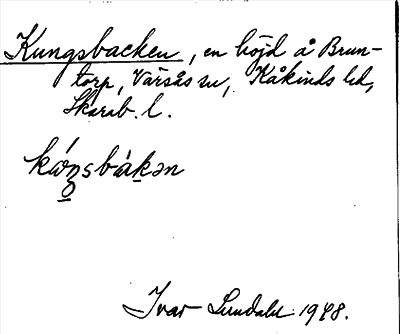 Kungsbacken, en höjd å Brun-
torp, Varsås sn, Kåkinds hd,
Skarab. l.
Ivar Lundahl 1948.